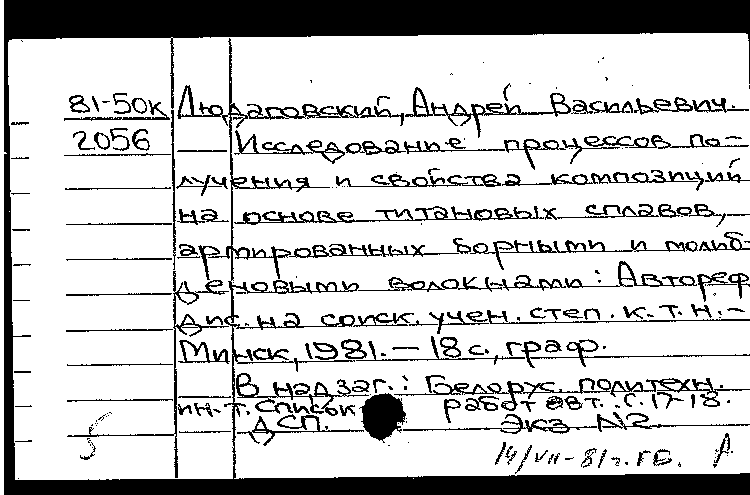 81-50к Людаговский, Андрей Васильевич.
2056 Исследование процессов по-
лучения и свойства композиций
на основе титановых сплавов,
армированных борными и молиб-
деновыми волокнами: Автореф
дис. на соиск. учен. степ. к.т.н.-
Минск, 1981. - 18 с., граф.
В надзаг.: Белорус. политехн.
ин-т. Список работ авт.: с. 17-18.
ДСП. Экз. №2
14/VII-81г. ГБ.